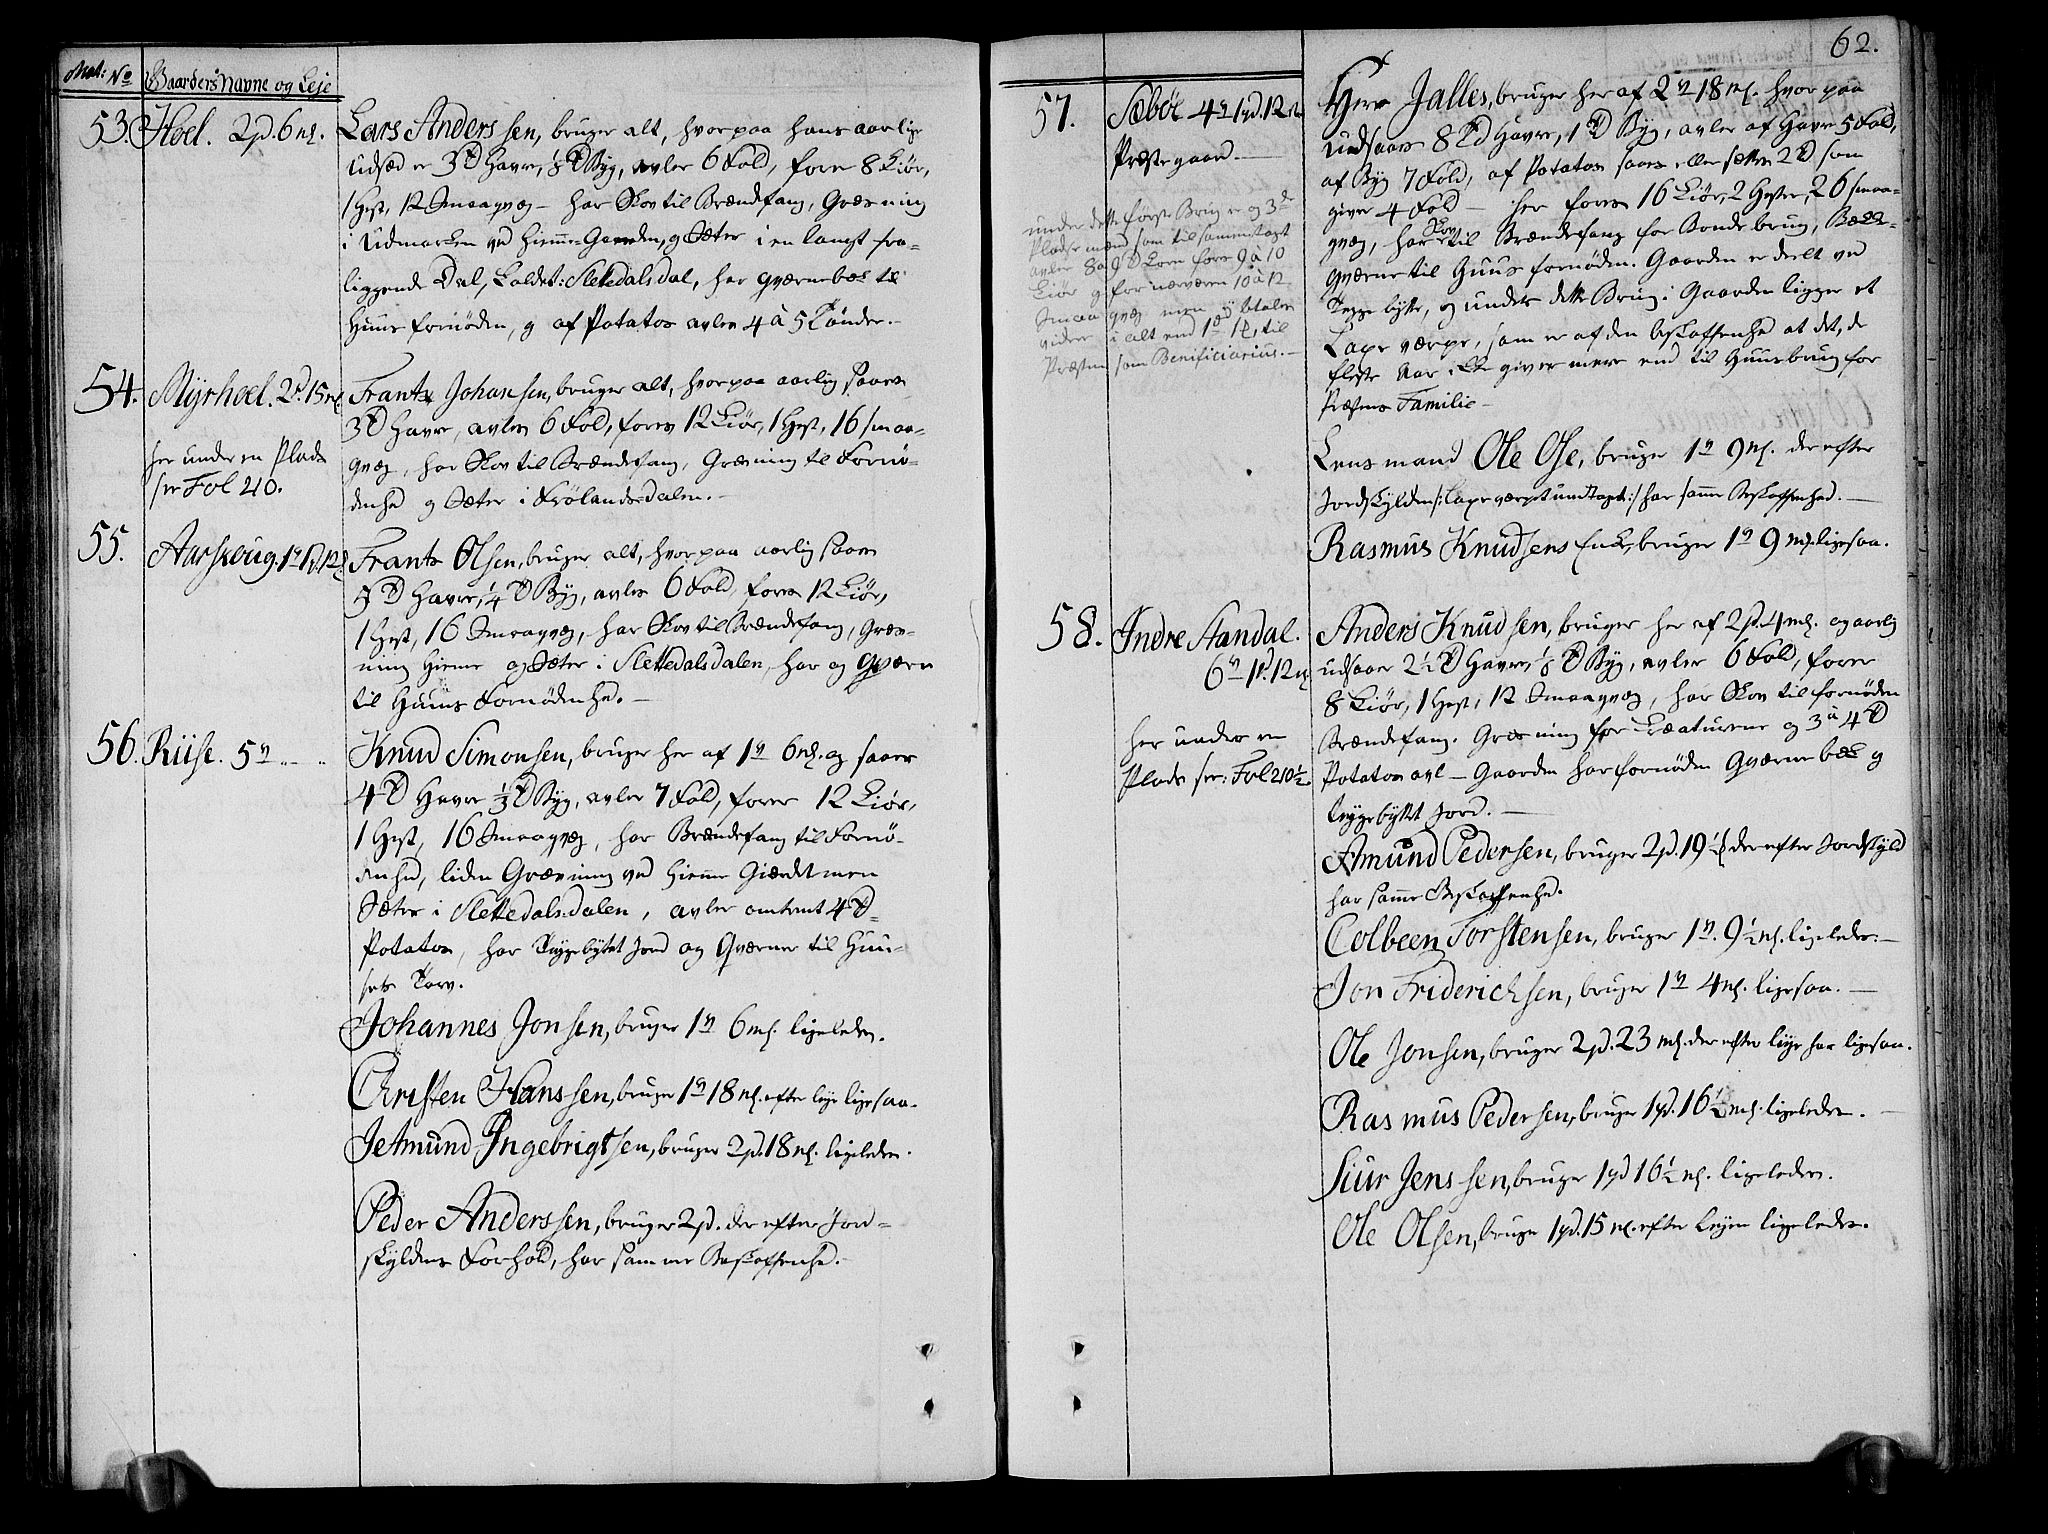 Mat: No Gaarders Navne og Leje
53. Hoel. 2pd. 6 mk.
Lars Anderssen, bruger alt, hvorpaa hans aarlige
Udsæd er 3 Td Havre, 1/8 Td Byg, avler 6 Fold, føder 8 Kiør,
1 Hest, 12 Smaaqvæg – har Skov til Brændefang, Græsning
i Udmarken ved Hiemme-Gaarden, og Sæter i en langt fra-
liggende Dal, kaldet: Slettedalsdal, har Qvernebæk til
Huus fornøden, og af Potatos avler 4 à 5 Tønder. –
54. Myrhoel. 2pd. 15 mk.
her under en Plads
see Fol 210.
Frantz Johansen, bruger alt, hvorpaa aarlig saaes
3 Td Havre, avler 6 Fold, føder 12 Kiør, 1 Hest, 16 smaa-
qvæg, har Skov til Brændefang, Græsning til Fornø-
denhed og Sæter i Frølandsdalen. –
55. Aarskoug. 1 v 1 pd. 12 mk.
Frantz Olsen, bruger alt, hvorpaa aarlig saaes
5 Td Havre, 1/4 Td Byg, avler 6 Fold, føder 12 Kiør,
1 Hest, 16 Smaaqvæg, har Skov til Brændefang, Græs-
ning Hieme og Sæter i Slettedalsdalen, har og Qværn
til Huus Fornødenhed. –
56. Riise. 5 v „ – „
Knud Simonsen, bruger her af 1 v 6 mk. og saaer
4 Td Havre 1/3 Td Byg, avler 7 Fold, føder 12 Kiør,
1 Hest, 16 Smaaqvæg, har Brændefang til Fornø-
denhed, liden Græsning ved Hieme Giærdet men
Sæter i Slettedalsdalen, avler omtrent 4 Td
Potatos, har Teigebyttet Jord og Qværner til Huu-
sets Tarv.
Johannes Jonsen, bruger 1 v 6 mk. ligeledes.
Christen Hanssen, bruger 1 v 18 mk. efter leje ligesaa.
JeAmund Ingebrigtsen, bruger 2pd. 18 mk. ligeledes.
Peder Anderssen, bruger 2pd. der efter Jord-
skyldens Forhold, har samme Beskaffenhed. –
62.
57. Sæbøe 4 v 1 pd. 12 mk
Præstegaard. –
under dette første Brug er og 3de
Pladsemænd som til sammentagt
avler 8 a 9 Td Korn føder 9 à 10
Kiør og for nærværende 10 à 12
Smaaqvæg men og betaler
videre i alt end 1 til
Præsten som Beneficiarius. –
Herr Jalles, bruger her af 2 v 18 mk. hvor paa
udsaaes 8 Td Havre, 1 Td Byg, avler af Havre 5 Fold,
af Byg 7 Fold, af Potatos saaes eller sættes 2 Td som
giver 4 Fold – her føres 16 Kiør, 2 Hester, 26 smaa-
qvæg, har Skov til Brændefang for Bondebrug, Bæk-
qværne til Huus fornøden. Gaarden er deelt ved
Teigebytte, og under dette Brug i Gaarden ligger et
Laxe værpe, som er af den beskaffenhed at det, de
fleste Aar ikke giver mere end til Huusbrug for
Præstens Familie –
Lensmand Ole Ose, bruger 1 v 9 mk. der efter
Jordskylden /: laxeværpet undtaget :/ har samme Beskaffenhed. –
Rasmus Knudsens Enke, bruger 1 v 9 mk. ligesaa.
58. Indre Standal.
6 v 1 pd. 12 mk
her under en
Plads see: Fol 210 1/2.
Anders Knudsen, bruger her af 2pd. 4 mk. og aarlig
udsaaer 2 1/2 Td Havre, 1/8 Td Byg, avler 6 Fold, føder
8 Kiør, 1 Hest, 12 Smaaqvæg, har Skov til fornøden
Brændefang. Græsning for Kreaturene og 3 à 4 Td
Potatos avl – Gaarden har fornøden Qværnebæk og
teigebyttet Jord. –
Amund Pedersen, bruger 2pd. 19 1/2 mk der efter Jordskyld
har samme Beskaffenhed.
Colbeen Torstensen, bruger 1 v. 9 1/2 mk. ligeledes. –
Jon Friderichsen, bruger 1 v 4 mk. ligesaa. –
Ole Jonsen, bruger 2pd. 23 mk. der efter leje har ligesaa.
Rasmus Pedersen, bruger 1pd. 16 1/2 mk. ligeledes. –
Siur Jenssen, bruger 1pd 16 1/2 mk. ligeledes.
Ole Olsen, bruger 1pd. 15 mk. efter Lejen ligeledes.